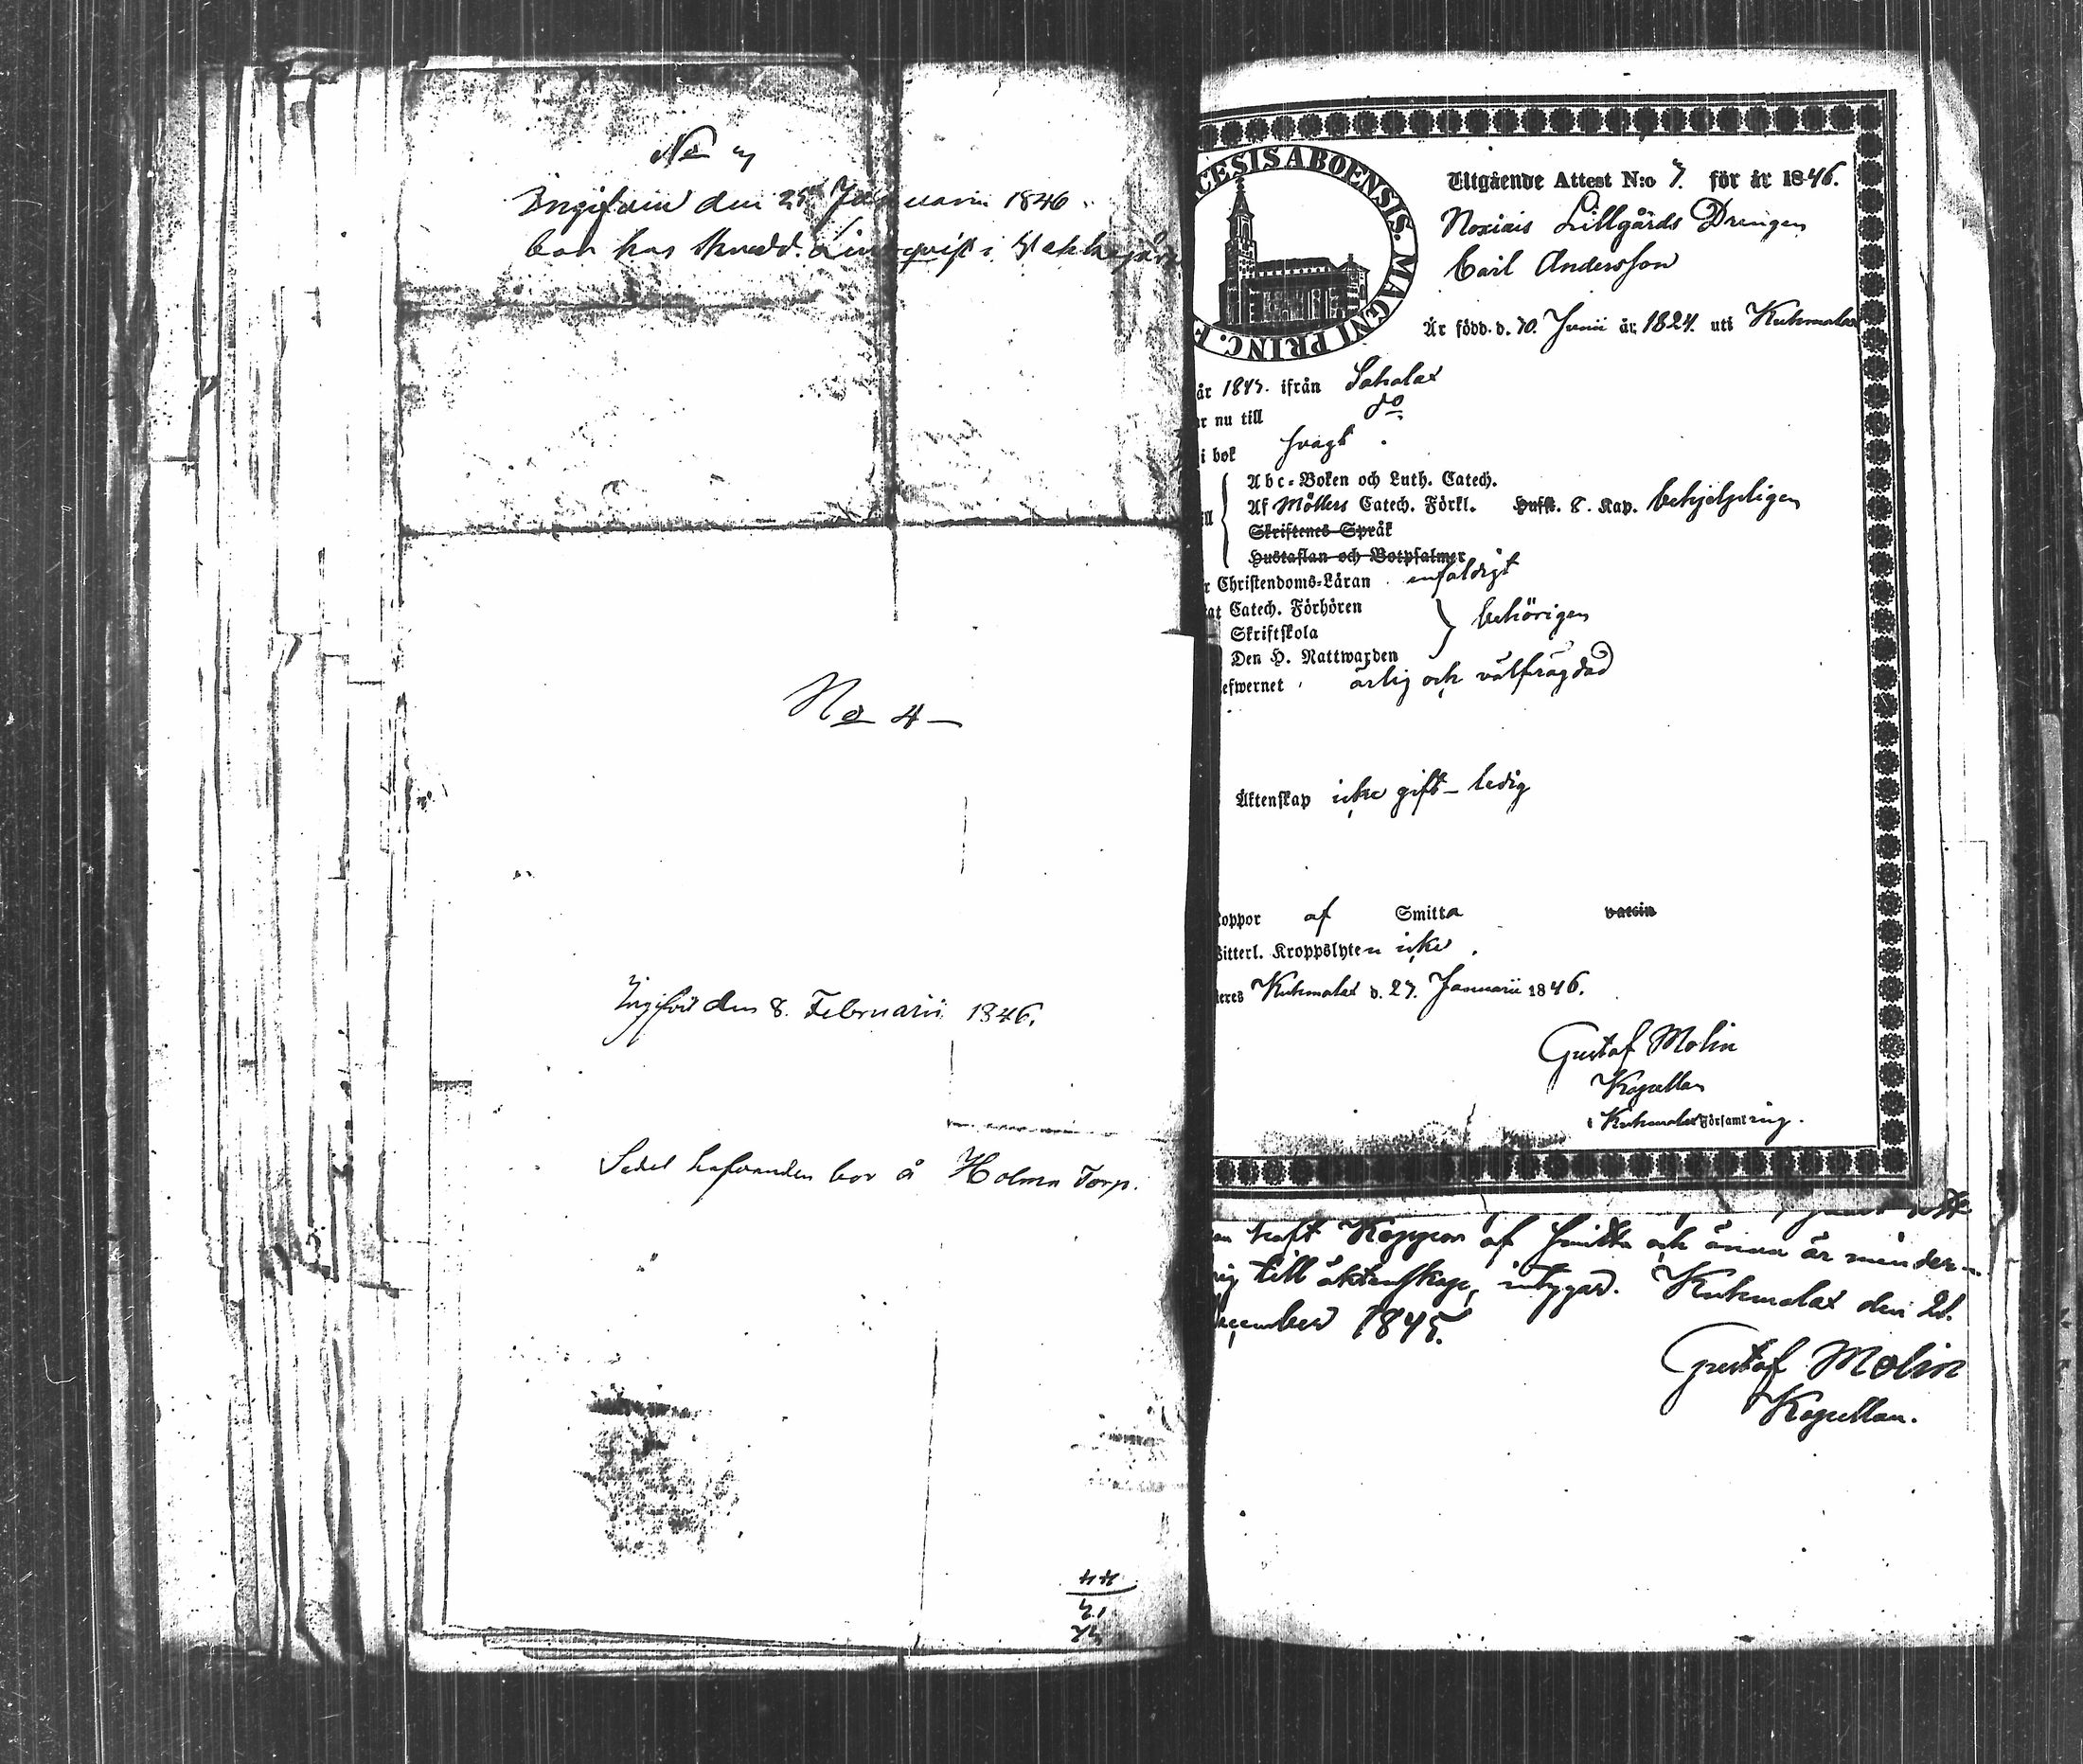 No
Ingifven den 25 Januarii 1846.
bor hos Skradd. Lindqvist i
No 4
Ingifvit den 8. Februarii 1846.
Sedel hafvanden bor å Holma Torp.
44
CESIS ABOENSIS. MAGNI PRINC. F
Utgående Attest N:o 7. för år 1846.
Lillgårds Drengen
Carl Andersson
Är född d. 10. Junii år 1824. uti Kuhmalax
år 1845. ifrån Sahalax
r nu till do
i bok svagt.
Abc-Boken och Luth. Catech.
Af Möllers Catech. Förkl. Hufst. 8. Kap. behjelpeligen
Skriftenes Språk
Hustaflan och Botpsalmer
r Christendoms-Läran enfaldigt
at Catech. Förhören
Skriftskola behörigen
Den H. Nattwarden
efwernet ärlig och välfrägdad
Äktenskap icke gift - ledig
koppor af Smitta vaccin
Witterl. Kroppslyten icke.
eres Kuhmalax d. 27. Januarii 1846.
Gustaf Molin
Kapellan
i Kuhmalax Församling.
haft Koppor af Smitta och ännu är minder-
ig till äktenskap, intygas. Kuhmalax den 21.
December 1845.
Gustaf Molin
Kapellan.